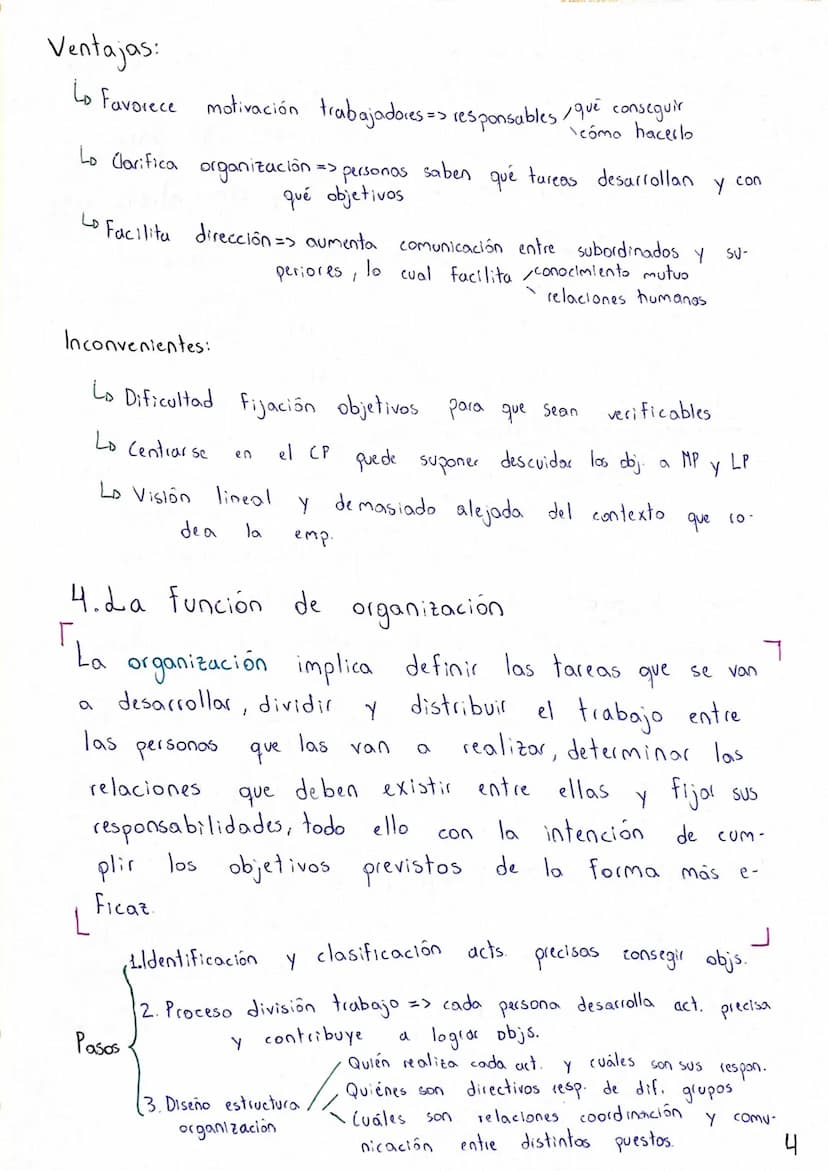 Ventajas:
↳ Favorece motivación trabajadores => responsables / qué conseguir
\ cómo hacerlo
↳ Clarifica organización => personas saben qué tareas desarrollan y con
qué objetivos
↳ Facilita dirección => aumenta comunicación entre subordinados y su-
periores, lo cual facilita / conocimiento mutuo
\ relaciones humanas
Inconvenientes:
↳ Dificultad fijación objetivos para que sean verificables
↳ Centrarse en el CP puede suponer descuidar los obj. a MP y LP
↳ Visión lineal y demasiado alejada del contexto que ro-
dea la emp.
4. La función de organización
La organización implica definir las tareas que se van
a desarrollar, dividir y distribuir el trabajo entre
las personas que las van a realizar, determinar las
relaciones que deben existir entre ellas y fijar sus
responsabilidades, todo ello con la intención de cum-
plir los objetivos previstos de la forma más e-
ficaz.
Pasos
1. Identificación y clasificación acts. precisas consegir objs.
2. Proceso división trabajo => cada persona desarrolla act. precisa
y contribuye a lograr objs.
3. Diseño estructura
organización
Quién realiza cada act. y cuáles son sus respon.
Quiénes son directivos resp. de dif. grupos
Cuáles son relaciones coordinación y comu-
nicación entre distintos puestos.
4